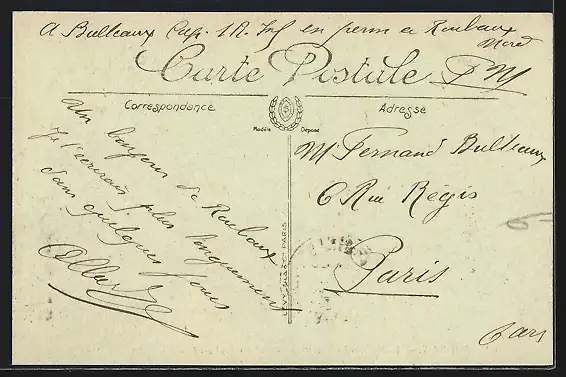 A Bulteaux Cap. 1R. Inf en perm a Roubaux
Nord
Carte Postale FM
Correspondance
Adresse
Modèle Déposé
Un bonjour de Roubaux
Je t'écrirais plus longuement
dans quelques jours
M Fernand Bulteaux
6 Rue Régis
Paris
PARIS